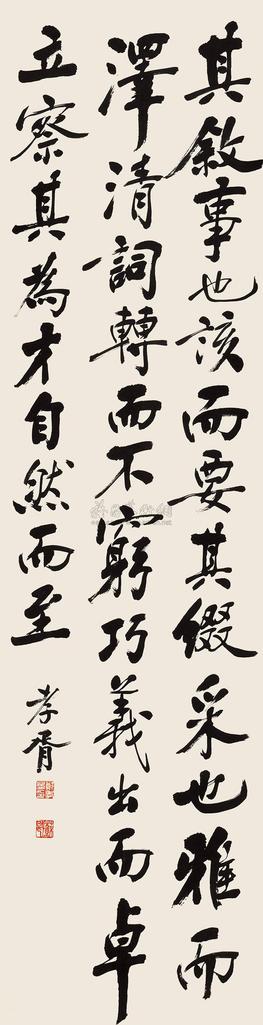 其敘事也該而要其綴采也雅而
澤清詞轉而不窮巧義出而卓
立察其為才自然而至
孝胥